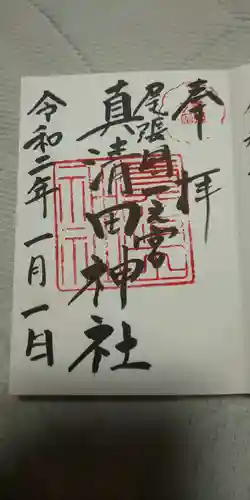 奉拝
尾張国一之宮
真清田神社
令和二年一月一日